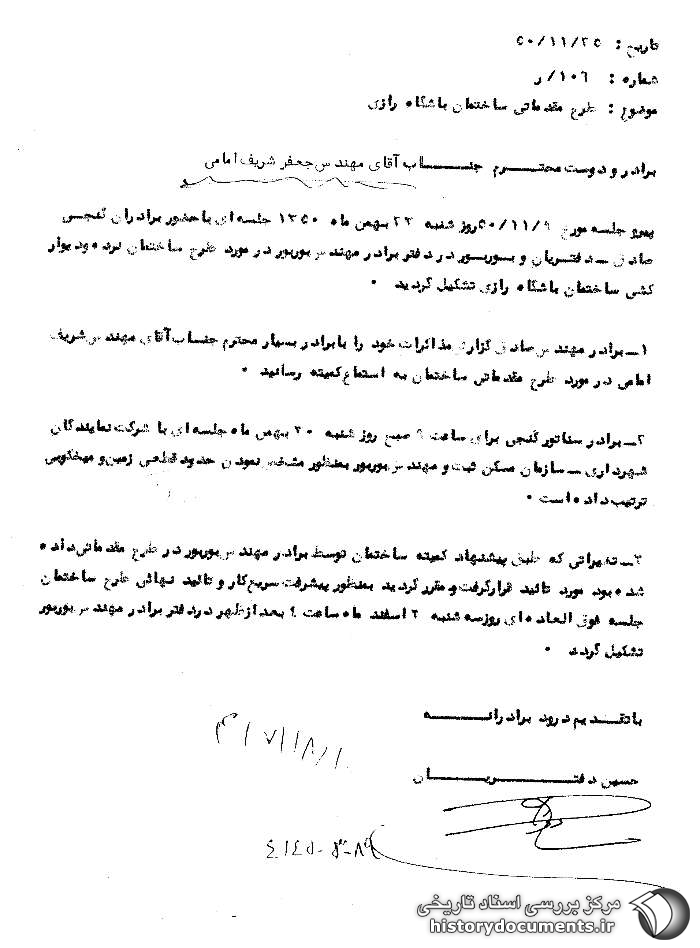 تاریخ : ۵۰/۱۱/۲۵
شماره : ۱۰۶/ر
موضوع : طرح مقدماتی ساختمان باشگاه رازی
برادر و دوست محترم جنـــاب آقای مهندس جعفر شریف امامی
پیرو جلسه مورخ ۵۰/۱۱/۹ روز شنبه ۲۳ بهمن ماه ۱۳۵۰ جلسه ای با حضور برادران گنجی
صادق ـ دفتریان و بوربور در دفتر برادر مهندس بوربور در مورد طرح ساختمان نرده و دیوار
کشی ساختمان باشگاه رازی تشکیل گردید ۰
۱ـ برادر مهندس صادق گزارش مذاکرات خود را با برادر بسیار محترم جناب آقای مهندس شریف
امامی در مورد طرح مقدماتی ساختمان به استماع کمیته رسانید ۰
۲ـ برادر سناتور گنجی برای ساعت ۹ صبح روز شنبه ۳۰ بهمن ماه جلسه ای با شرکت نمایندگان
شهرداری ـ سازمان مسکن ثبت و مهندس بوربور بمنظور مشخص نمودن حدود قطعی زمین و میخکوبی
ترتیب داده است ۰
۳ـ تغییراتی که طبق پیشنهاد کمیته ساختمان توسط برادر مهندس بوربور در طرح مقدماتی داده
شده بود مورد تائید قرار گرفت و مقرر گردید بمنظور پیشرفت سریع کار و تائید نهائی طرح ساختمان
جلسه فوق العاده ای روز سه شنبه ۳ اسفند ماه ساعت بعد از ظهر در دفتر برادر مهندس بوربور
تشکیل گردد ۰
با تقـــدیم درود برادرانـــــه
حسین دفتـــــریـــــان
مرکز بررسی اسناد تاریخی
historydocuments.ir